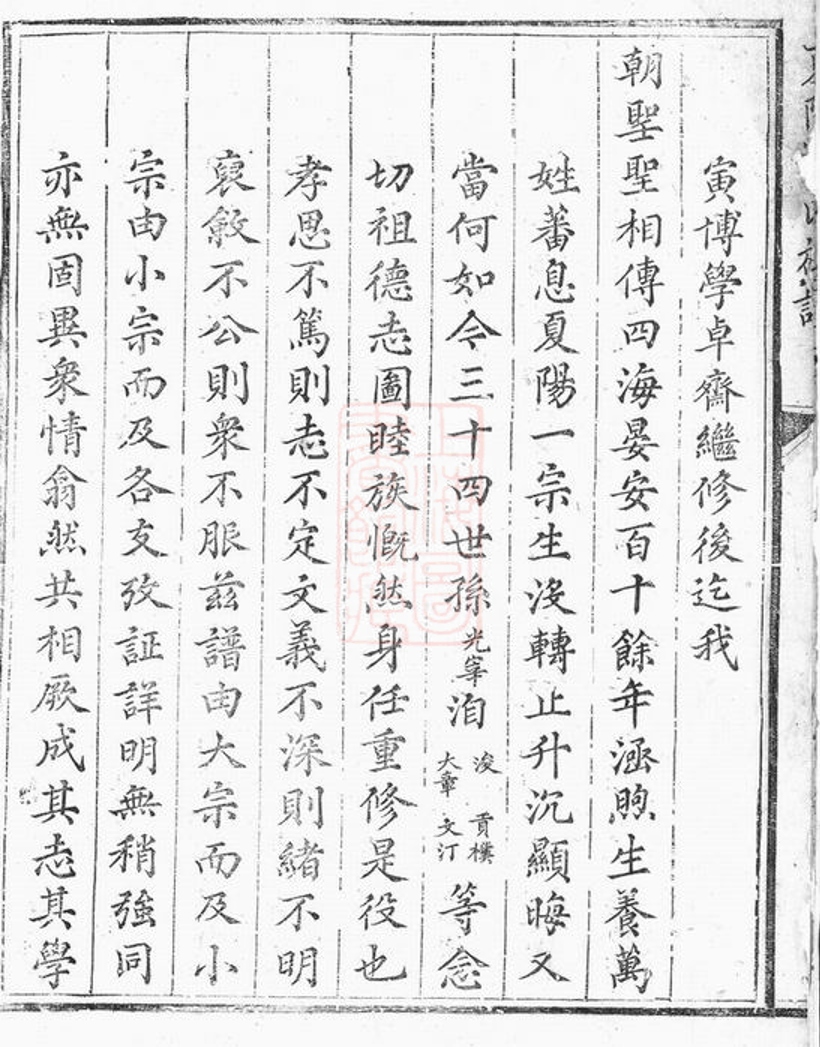 寅博學卓齋繼修後迄我
朝聖聖相傳四海晏安百十餘年涵煦生養萬
姓蕃息夏陽一宗生沒轉止升沉顯晦又
當何如今三十四世孫光宰洎浚大章貢樸文汀等念
切祖德志圖睦族慨然身任重修是役也
孝思不篤則志不定文義不深則緒不明
裒敘不公則衆不服茲譜由大宗而及小
宗由小宗而及各支攷証詳明無稍強同
亦無固異衆情翕然共相厥成其志其學